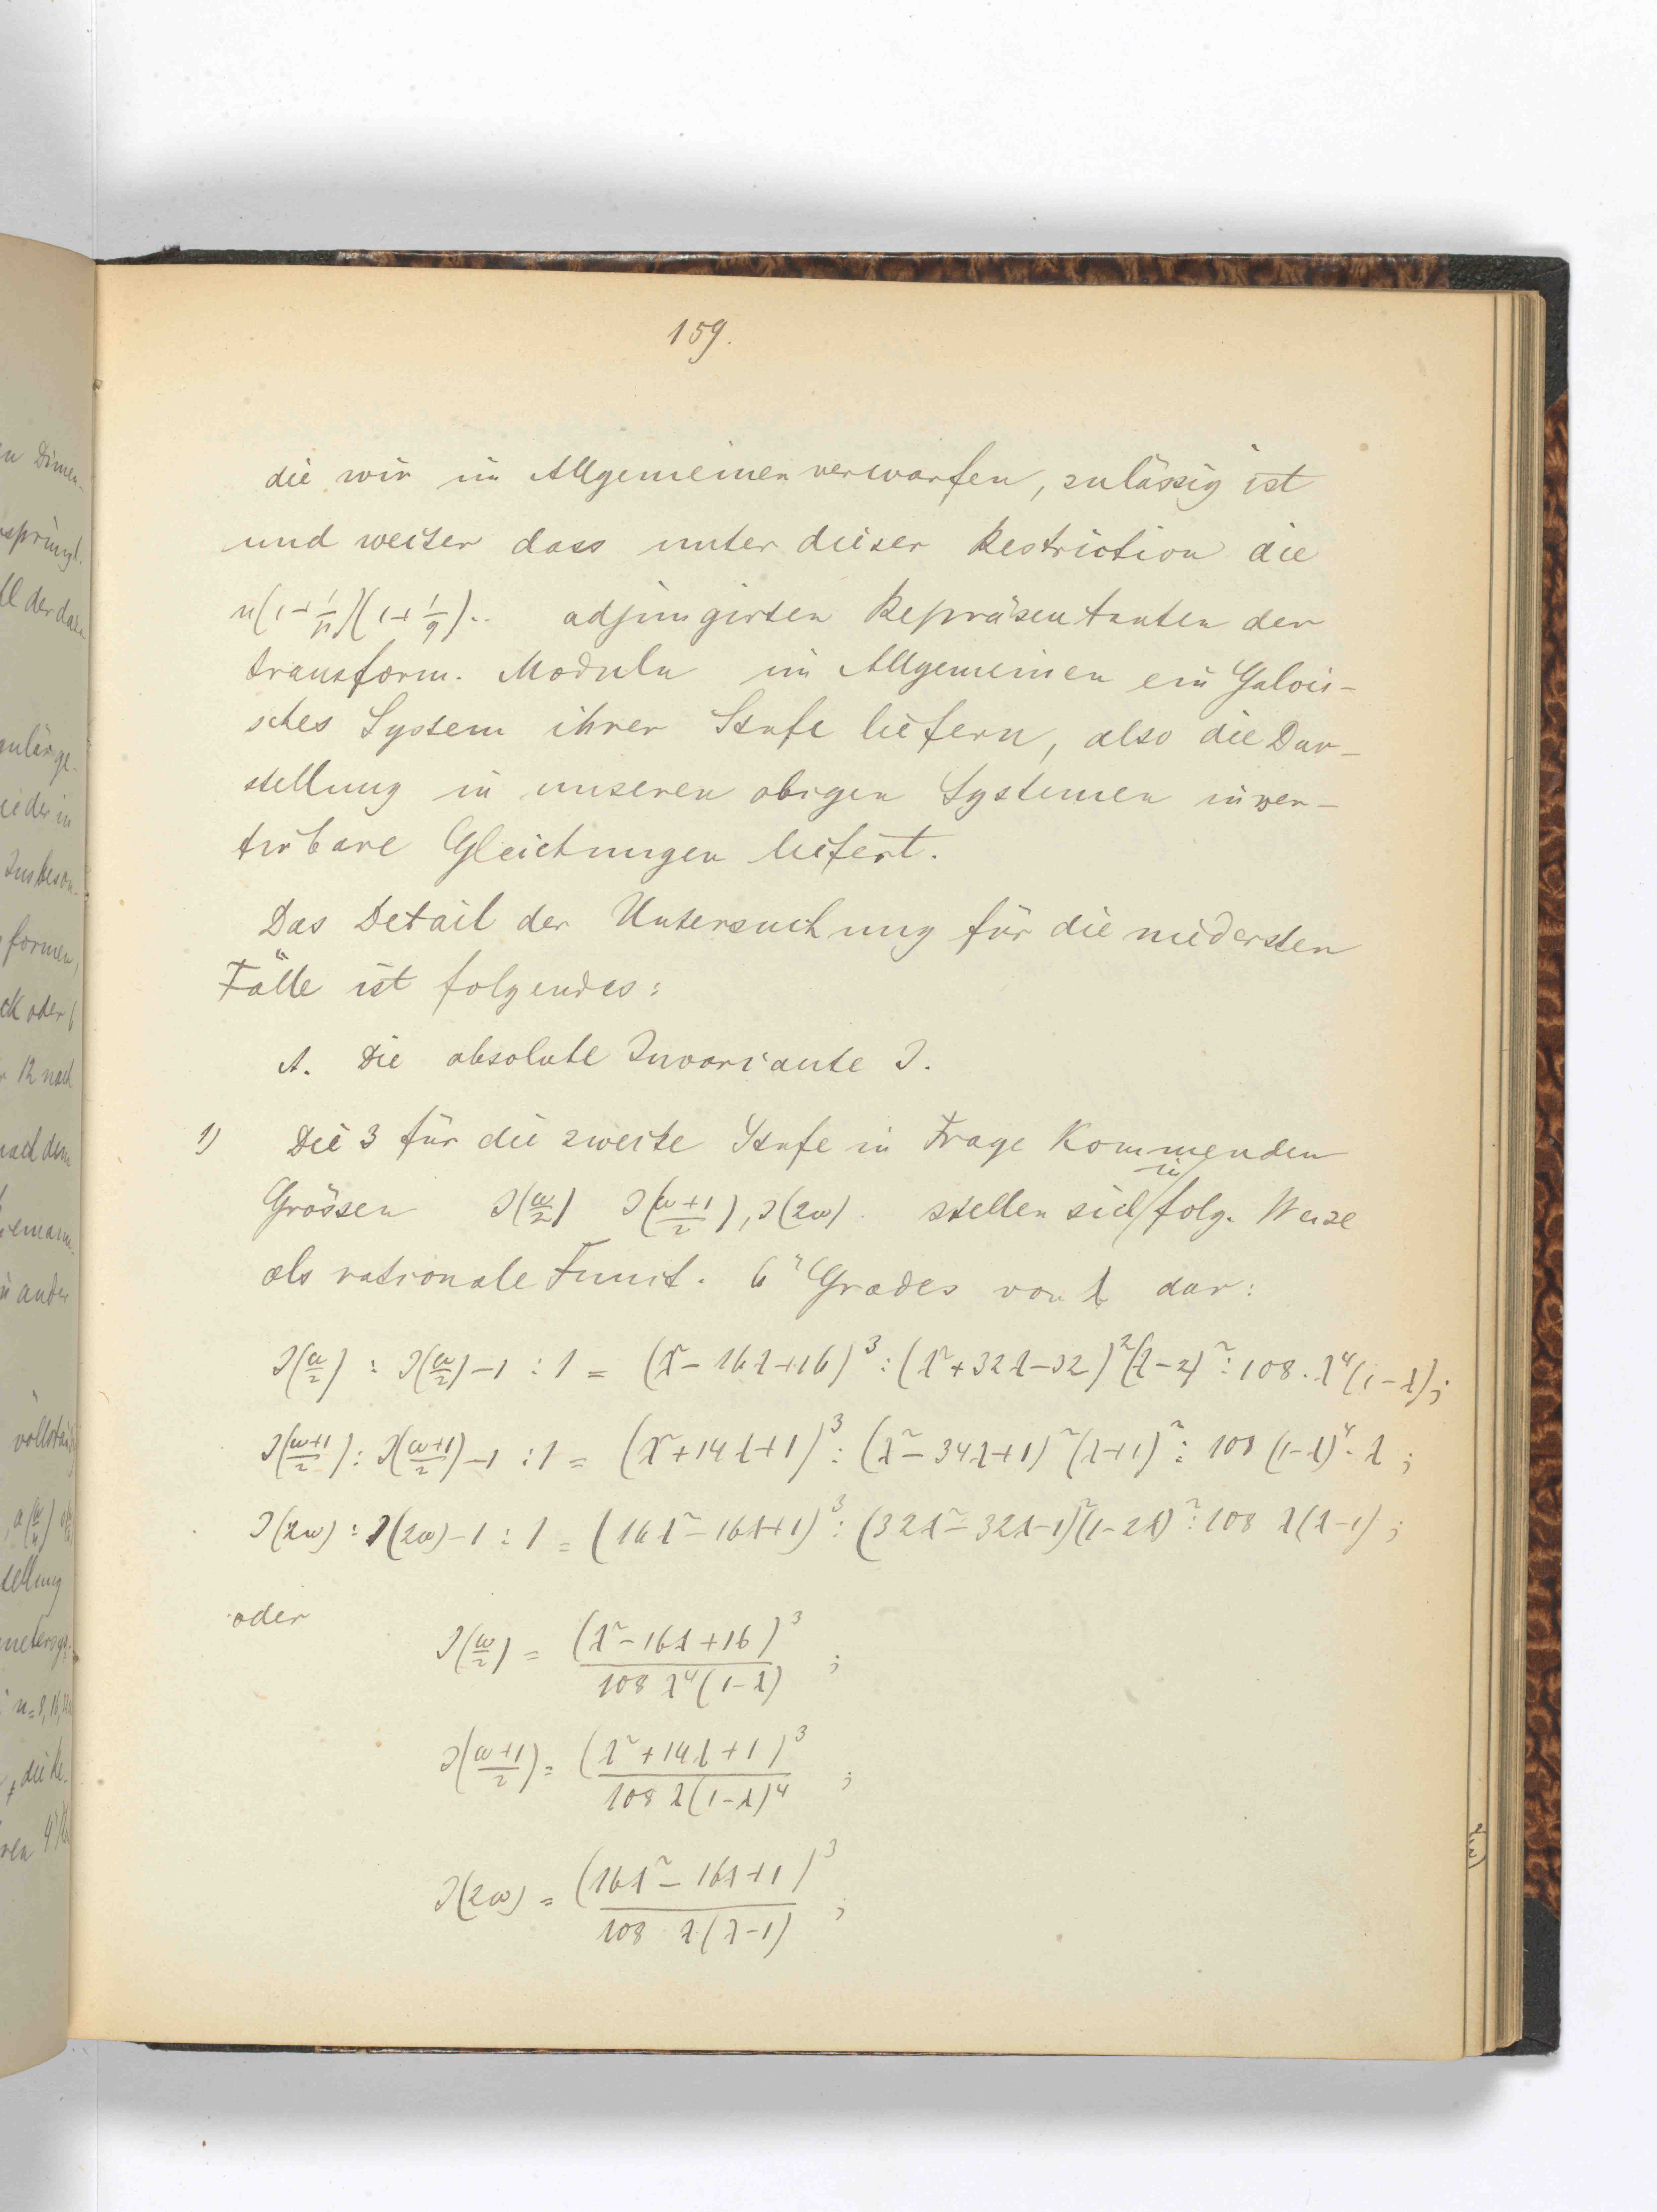 159.
die wir im Allgemeinen verwarfen, zulässig ist
und weiter dass unter dieser Restriction die
n(1+1/p)(1+1/q).. adjungirten Repräsentanten der
transform. Moduln im Allgemeinen ein Galois-
sches System ihrer Stufe liefern, also die Dar-
stellung in unseren obigen Systemen inver-
tirbare Gleichungen liefert.
Das Detail der Untersuchung für die niedersten
Fälle ist folgendes:
A. Die absolute Invariante J.
1) Die 3 für die zweite Stufe in Frage kommenden
Grössen J(ω/2) J((ω+1)/2), J(2ω). stellen sich in folg. Weise
als rationale Funct. 6" Grades von λ dar:
J(ω/2) : J(ω/2)-1 : 1 = (λ²-16λ+16)³ : (λ²+32λ-32)²(λ-2)² : 108.λ⁴(1-λ);
J((ω+1)/2) : J((ω+1)/2)-1 : 1 = (λ²+14λ+1)³ : (λ²-34λ+1)²(λ+1)² : 108 (1-λ)⁴.λ ;
J(2ω) : J(2ω)-1 : 1 = (16λ²-16λ+1)³ : (32λ²-32λ-1)²(1-2λ)² : 108 λ(λ-1) ;
oder
J(ω/2) = (λ²-16λ+16)³ / 108 λ⁴(1-λ) ;
J((ω+1)/2) = (λ²+14λ+1)³ / 108 λ(1-λ)⁴ ;
J(2ω) = (16λ²-16λ+1)³ / 108 λ(λ-1) ;